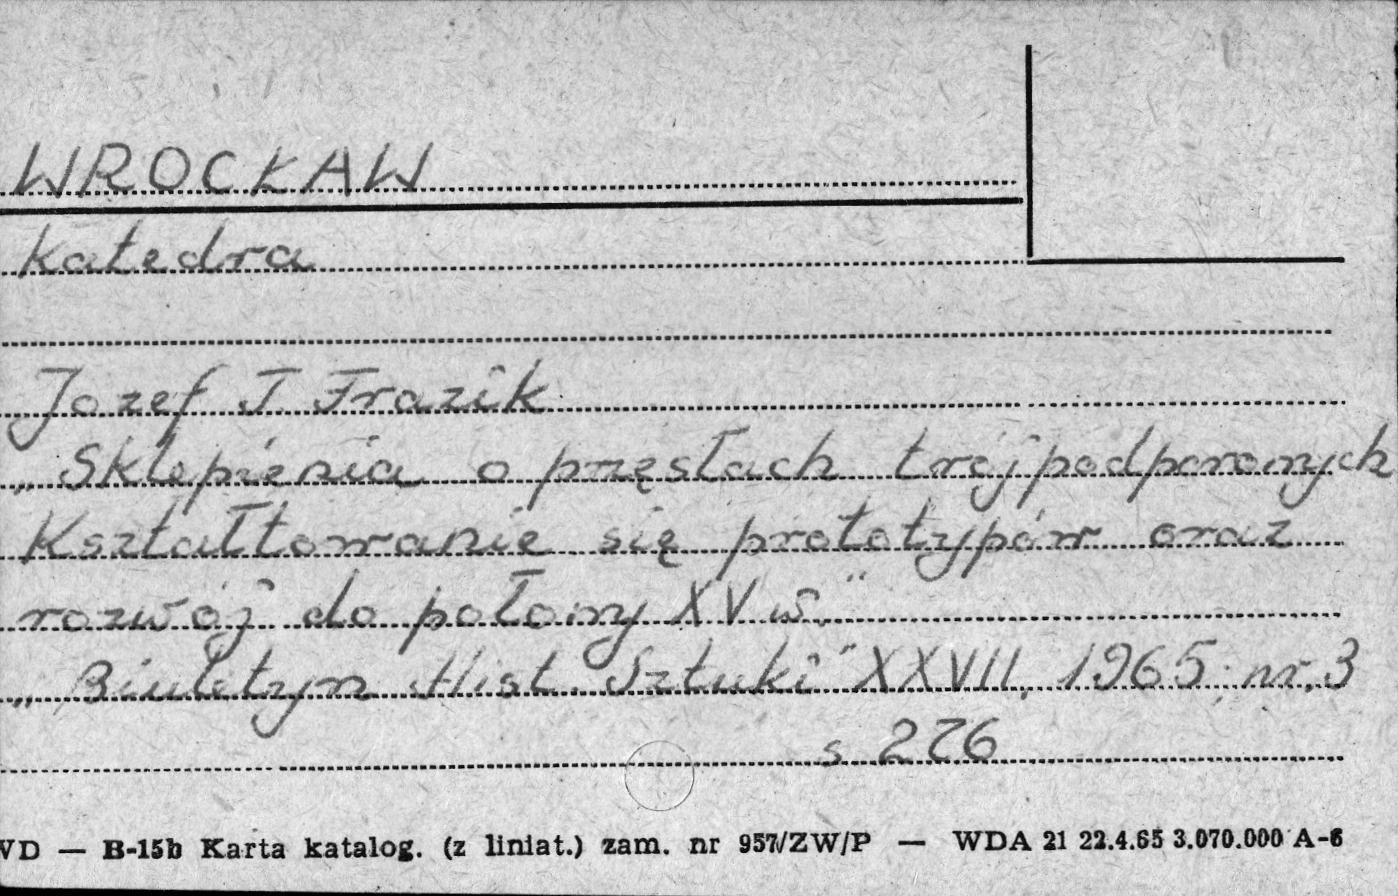 WROCŁAW
Katedra
Jozef T. Frazik
„Sklepienia o przęsłach trójpodporowych
Kształtowanie się prototypów oraz
rozwój do połowy XV w."
„Biuletyn Hist. Sztuki" XXVII, 1965, nr. 3
s. 276
WD — B-15b Karta katalog. (z liniat.) zam. nr 957/ZW/P — WDA 21 22.4.65 3.070.000 A-6